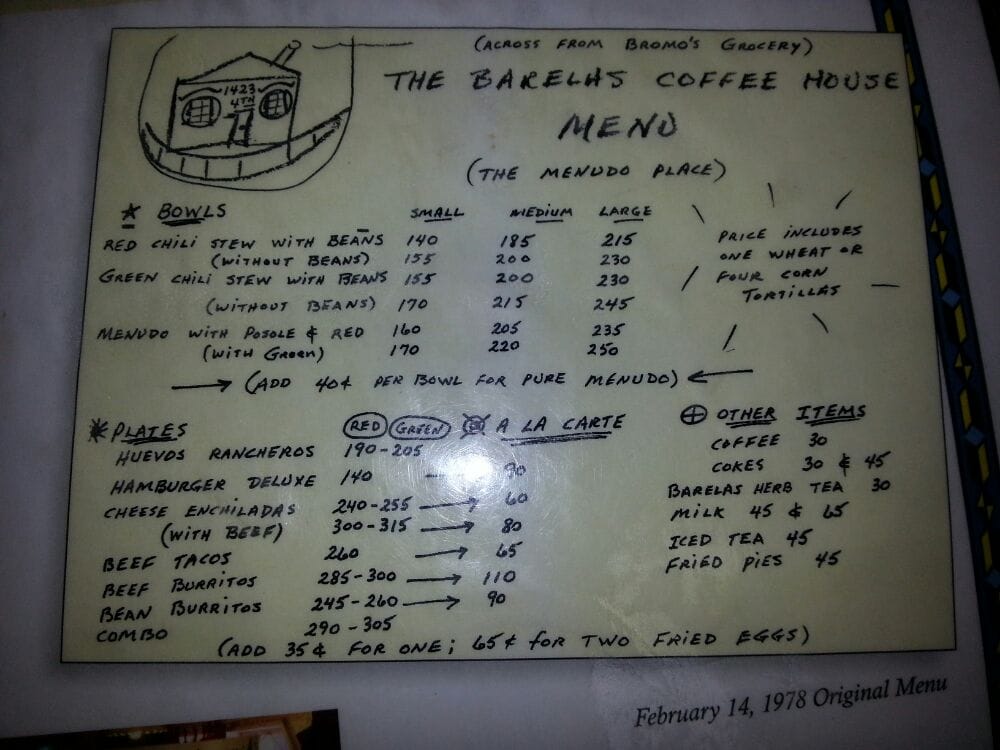 (ACROSS FROM BROMO'S GROCERY)
THE BARELAS COFFEE HOUSE
MENU
(THE MENUDO PLACE)
1423
4TH
* BOWLS SMALL MEDIUM LARGE
RED CHILI STEW WITH BEANS 140 185 215
(WITHOUT BEANS) 155 200 230
GREEN CHILI STEW WITH BEANS 155 200 230
(WITHOUT BEANS) 170 215 245
MENUDO WITH POSOLE & RED 160 205 235
(WITH GREEN) 170 220 250
PRICE INCLUDES
ONE WHEAT OR
FOUR CORN
TORTILLAS
→ (ADD 40¢ PER BOWL FOR PURE MENUDO) ←
* PLATES RED GREEN A LA CARTE
HUEVOS RANCHEROS 190-205
HAMBURGER DELUXE 140 — 90
CHEESE ENCHILADAS 240-255 → 60
(WITH BEEF) 300-315 → 80
BEEF TACOS 260 → 65
BEEF BURRITOS 285-300 → 110
BEAN BURRITOS 245-260 → 90
COMBO 290-305
OTHER ITEMS
COFFEE 30
COKES 30 & 45
BARELAS HERB TEA 30
MILK 45 & 65
ICED TEA 45
FRIED PIES 45
(ADD 35¢ FOR ONE; 65¢ FOR TWO FRIED EGGS)
February 14, 1978 Original Menu